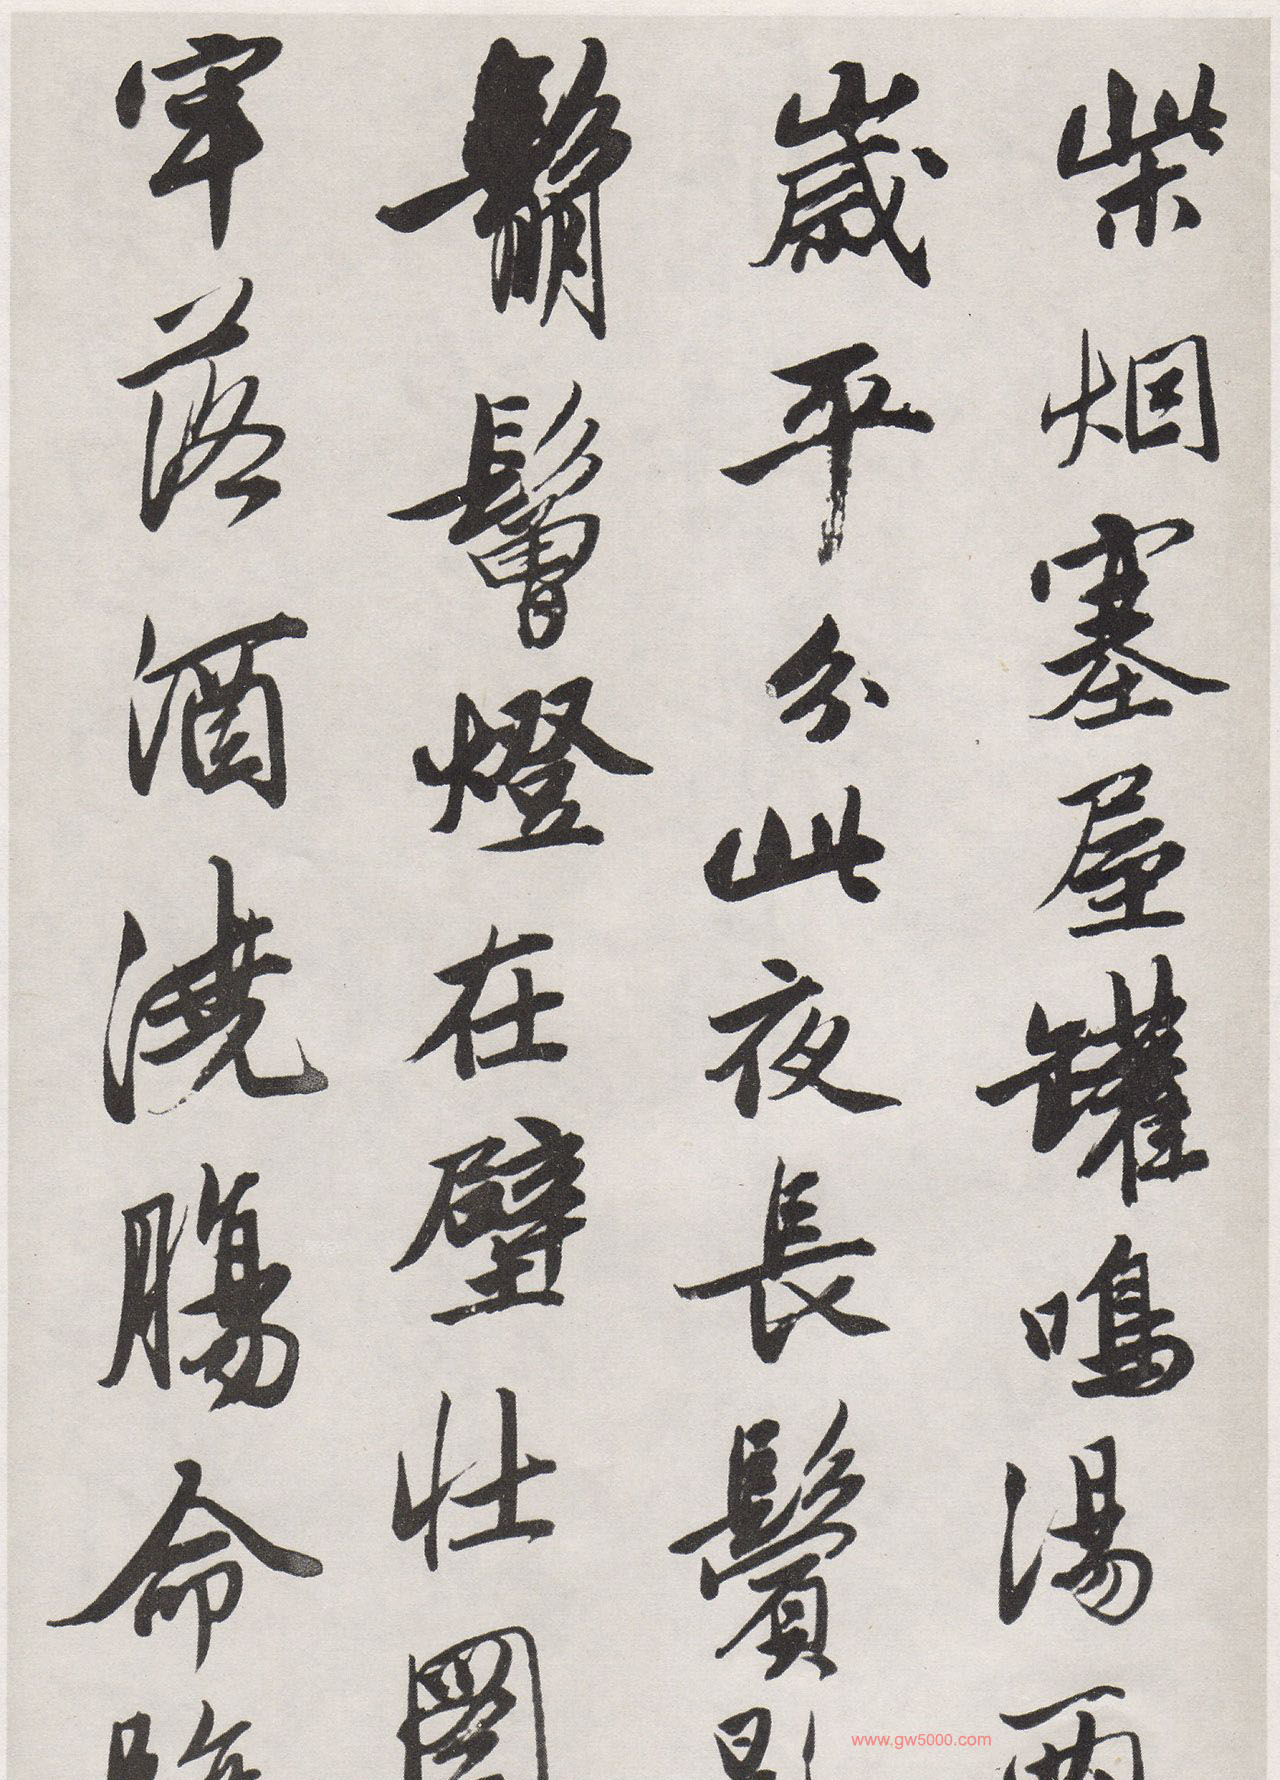 柴烟塞屋罐鳴湯兩
歲平分此夜長鬢影
鬅鬙燈在壁壮圖
牢落酒澆腸命
www.gw5000.com